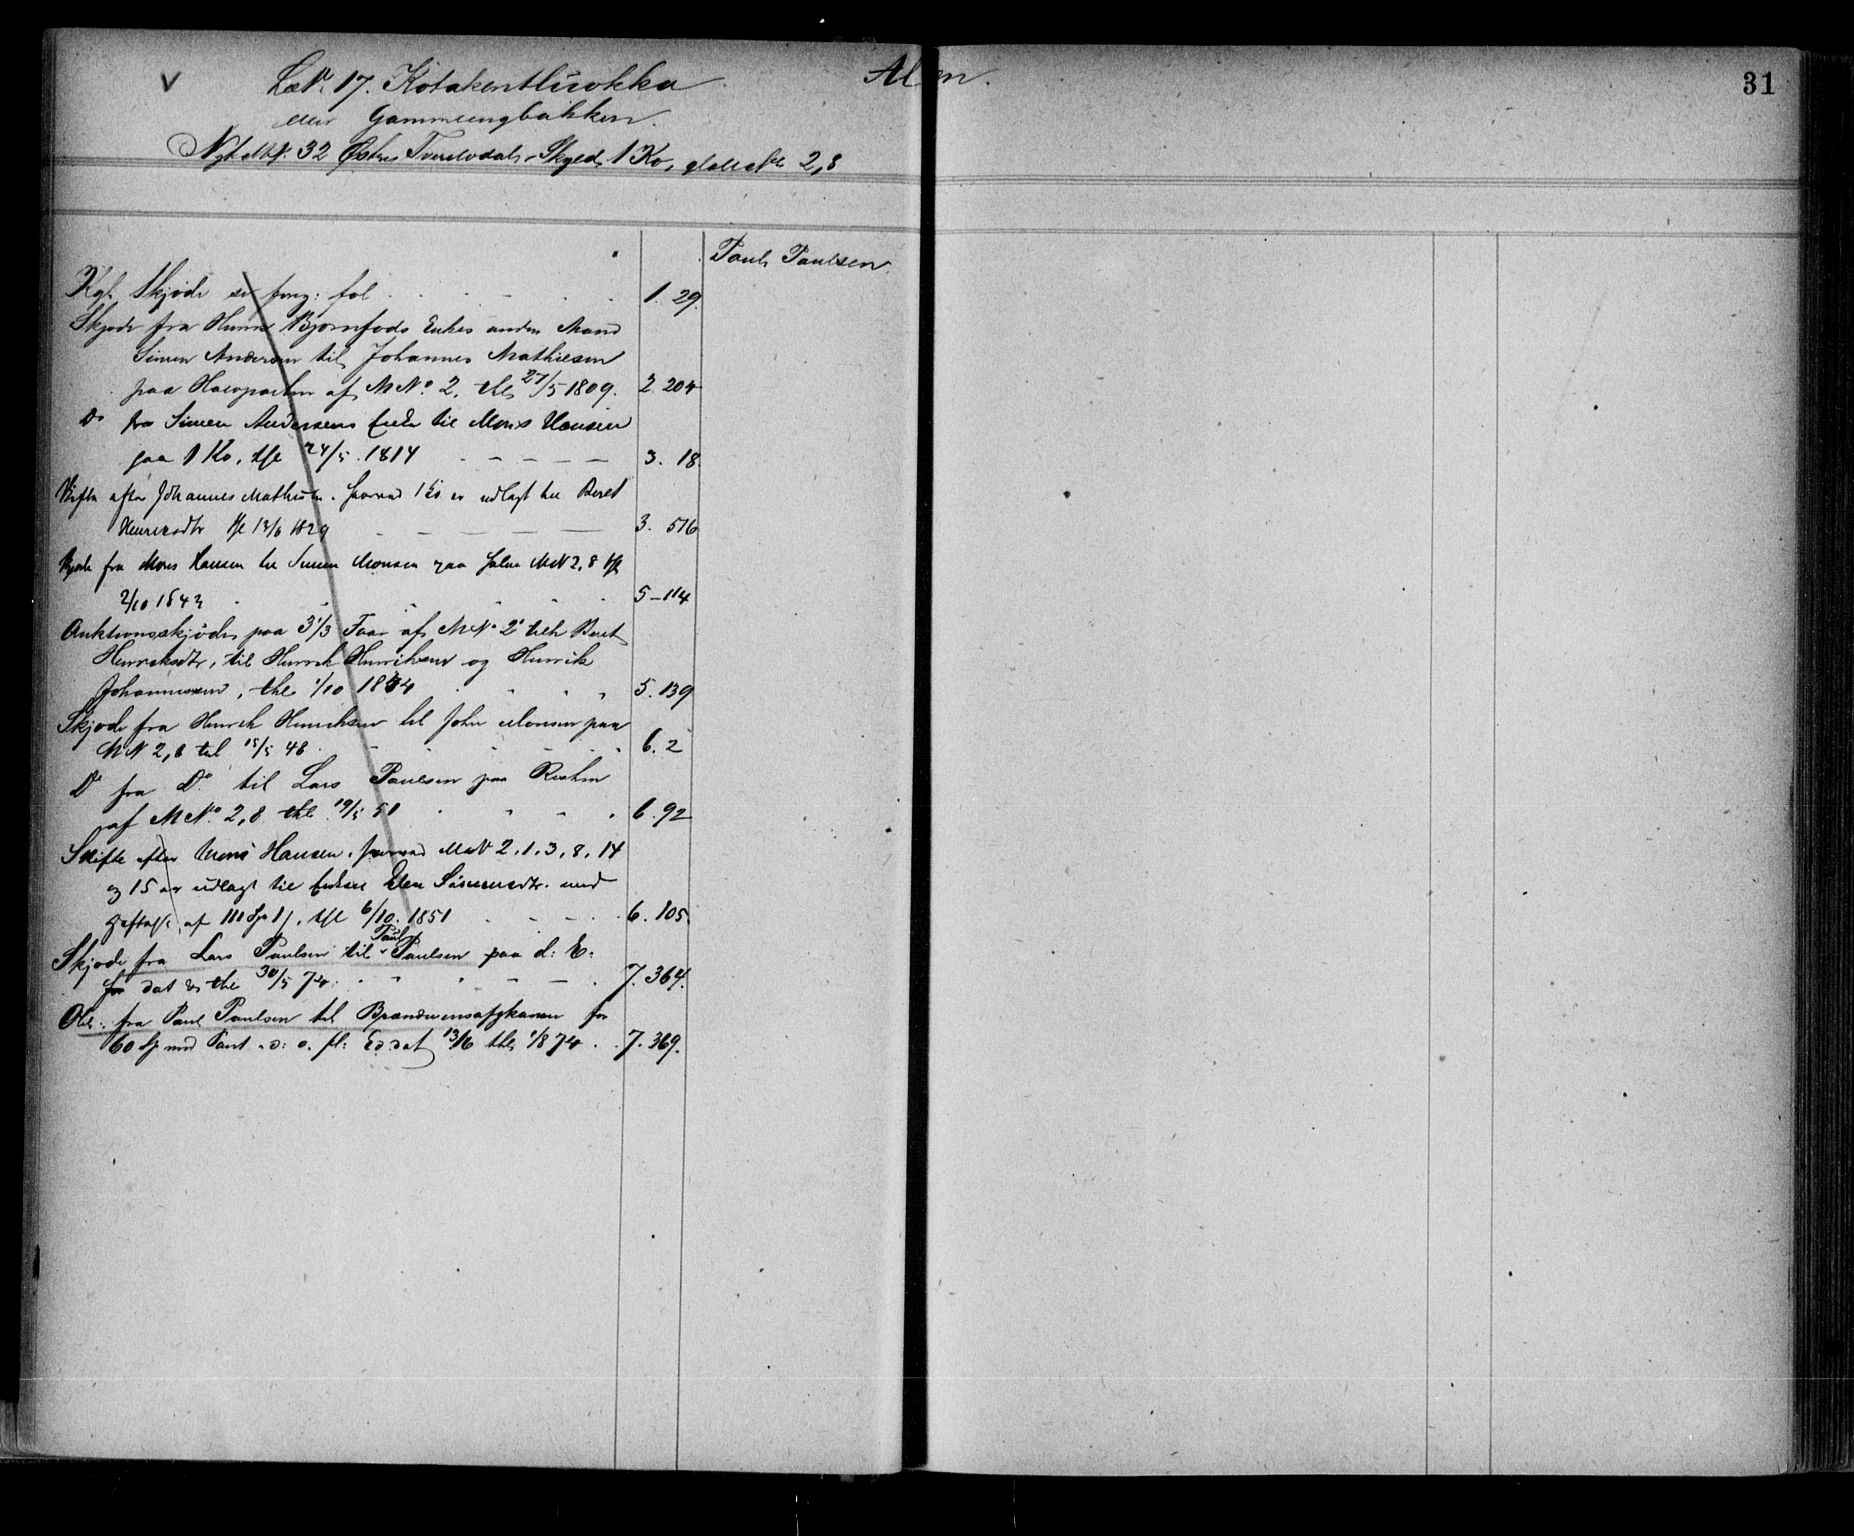 V
LeN. 17. Kotakentlüsokka
Alen.
31
eller Gammeengbakken.
Nyt MN. 32 Østre Tverelvdal, Skyld, 1 Ko, gl. MN 2,8
Paul Paulsen
Kgl. Skjøde se foreg: fol 1. 29.
Skjøde fra Henr. Bjørnfods Enkes anden Mand
Simen Andersen til Johannes Mathiesen
paa Halvparten af MNo. 2, thl 27/5 1809. 2. 204
Do fra Simen Andersens Enke til Mons Hansen
paa 1 Ko, thl 24/5. 1814 3. 18.
Skifte efter Johannes Mathies. hvorved 1 Ko er udlagt til Beret
Henriksdtr thl 13/6 1829 3. 516
Skjøde fra Mons Hansen til Simen Monsen paa halve MN 2,8 thl
2/10 1843 5-114
Auktionsskjøde paa 3 1/3 Faar af MNo 2 tilh Beret
Henriksdtr, til Henrik Henriksen og Henrik
Johannesen, thl 1/10 1844 5. 139
Skjøde fra Henrik Henriksen til John Monsen paa
MN 2,8 thl 15/5 48 6. 2
Do fra Do til Lars Paulsen paa Resten
af MNo. 2,8 thl. 19/5 51 6. 92
Skifte efter Mons Hansen, hvorved MN 2.1.3,8.14
og 15 er udlagt til Enken Elen Simensdtr. med
Heftelse af 111 Sp 1 ), thl 6/10. 1851 6. 105.
Skjøde fra Lars Paulsen til Paul Paulsen paa d: E:
for dat & thl 30/5 74 7. 364.
Obl: fra Paul Paulsen til Brændevinsafgkassen for
60 Sp med Pant .d: o. fl: Ed dat 13/6 thl 1/8 74 7. 369.